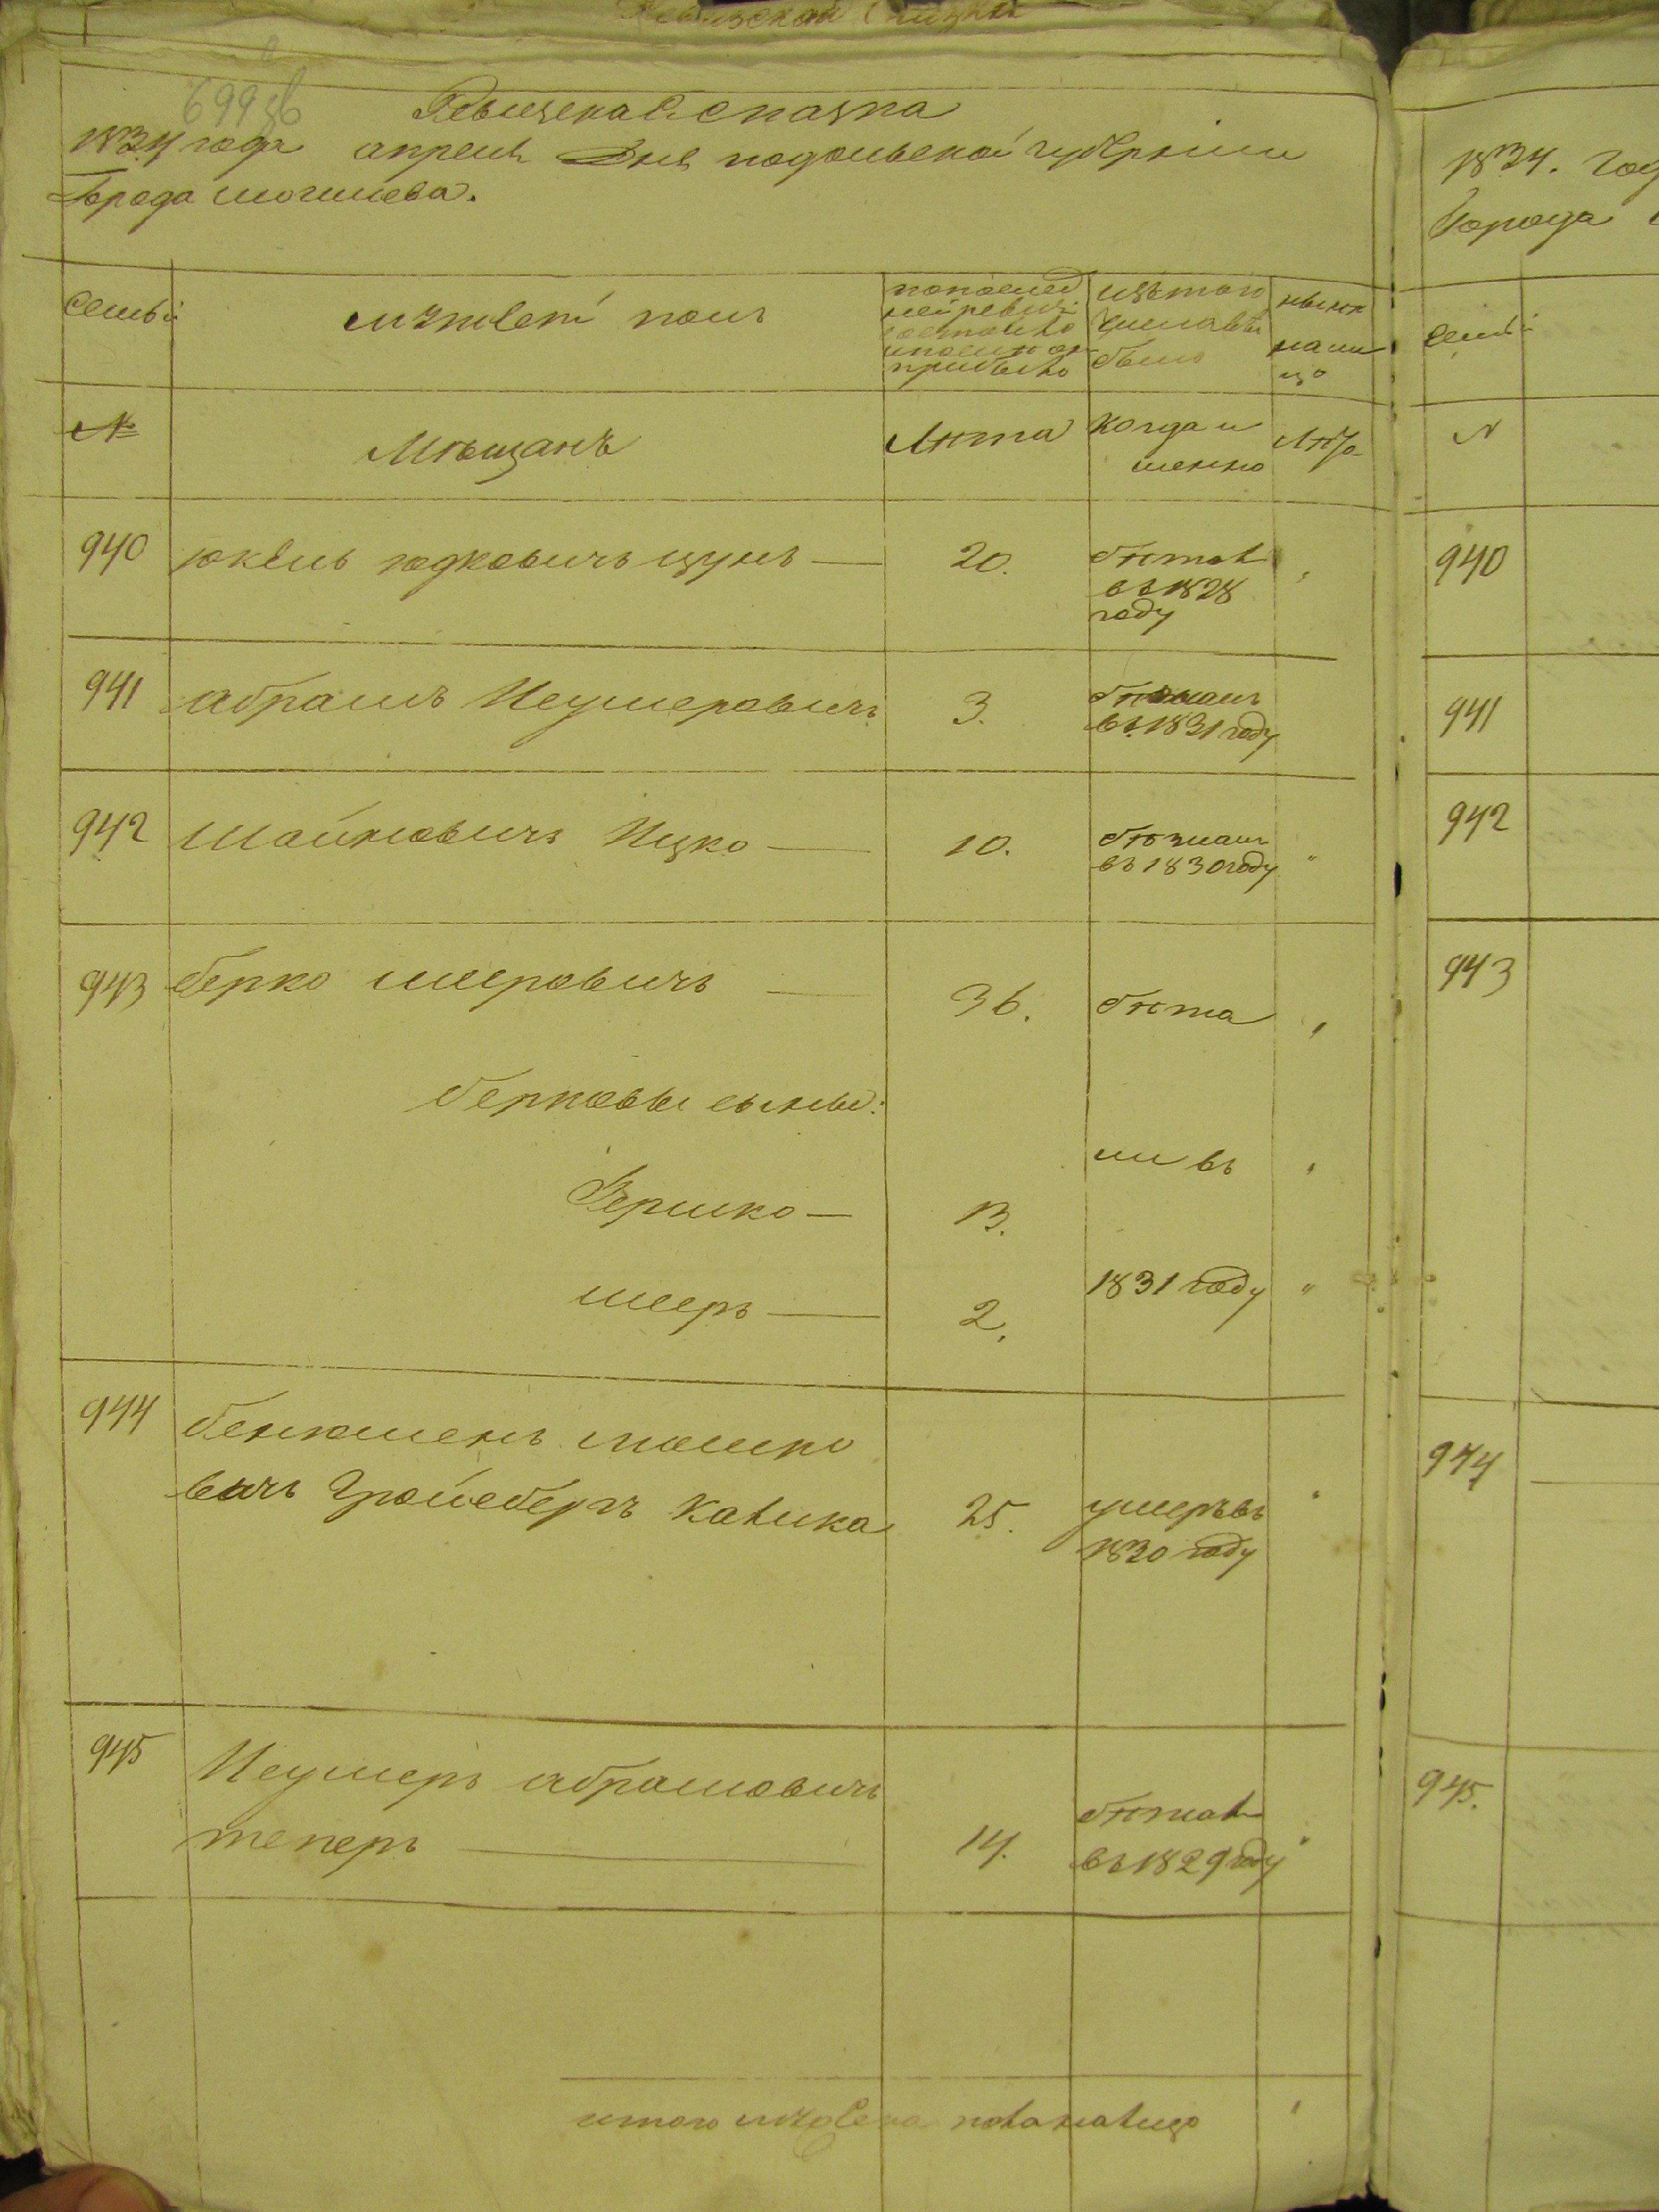 Ревизская сказка
699 об
1834 года апреля дня подольской губернiи
Города могилева.
Семьи
мужеской полъ
по послед
ней ревизiи
состояло
и после он
прибыло
изъ того
числа вы
было
ныне
на ли
цо
№
Мѣщанъ
Лѣта
Когда и
менно
Лѣта
940 юкель юдковичъ цунъ — 20. бѣжал
въ 1828
году
941 абрамъ Неумеровичъ 3. бѣжалъ
въ 1831 году
942 Шаймовичъ Ицко — 10. бѣжалъ
въ 1830 году "
943 берко меировичъ — 36. бѣжа
берковы сыны:
ли въ
Гершко — 13.
мееръ — 2.
1831 году "
944 бенюменъ мошко
вичъ Гройсбергъ Калика 25. умеръ въ
1830 году
945 Неумеръ абрамовичъ
теперъ — 14. бѣжал
въ 1829 году
итого мужеска пола налицо
1834. год
Города
Семьи
№
940
941
942
943
944
945.